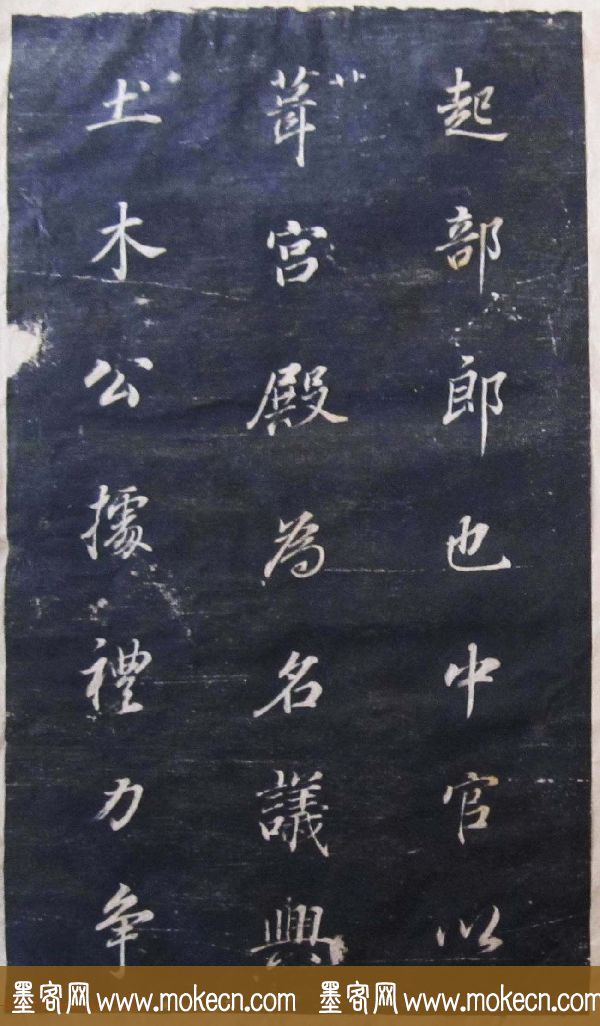 起部郎也中官以
葺宫殿為名議興
土木公據禮力争
墨客网 www.mokecn.com 墨客网 www.mokecn.com